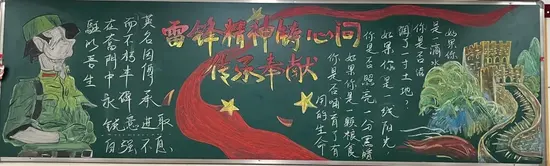 雷锋精神铸心间
传承奉献
英名因傅承
而不朽丰碑
在奋斗中永
駐以吾生
锐意進取
自强不息
如果你
是一滴水
你是否滋
润了一寸土地?
如果你是一线阳光,
你是否照亮一分黑暗
如果你是一颗粮食
你是否哺育了有
用的生命